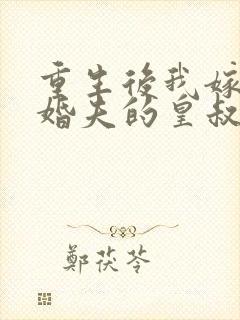 重生後我嫁
婚夫的皇叔
鄭茯苓